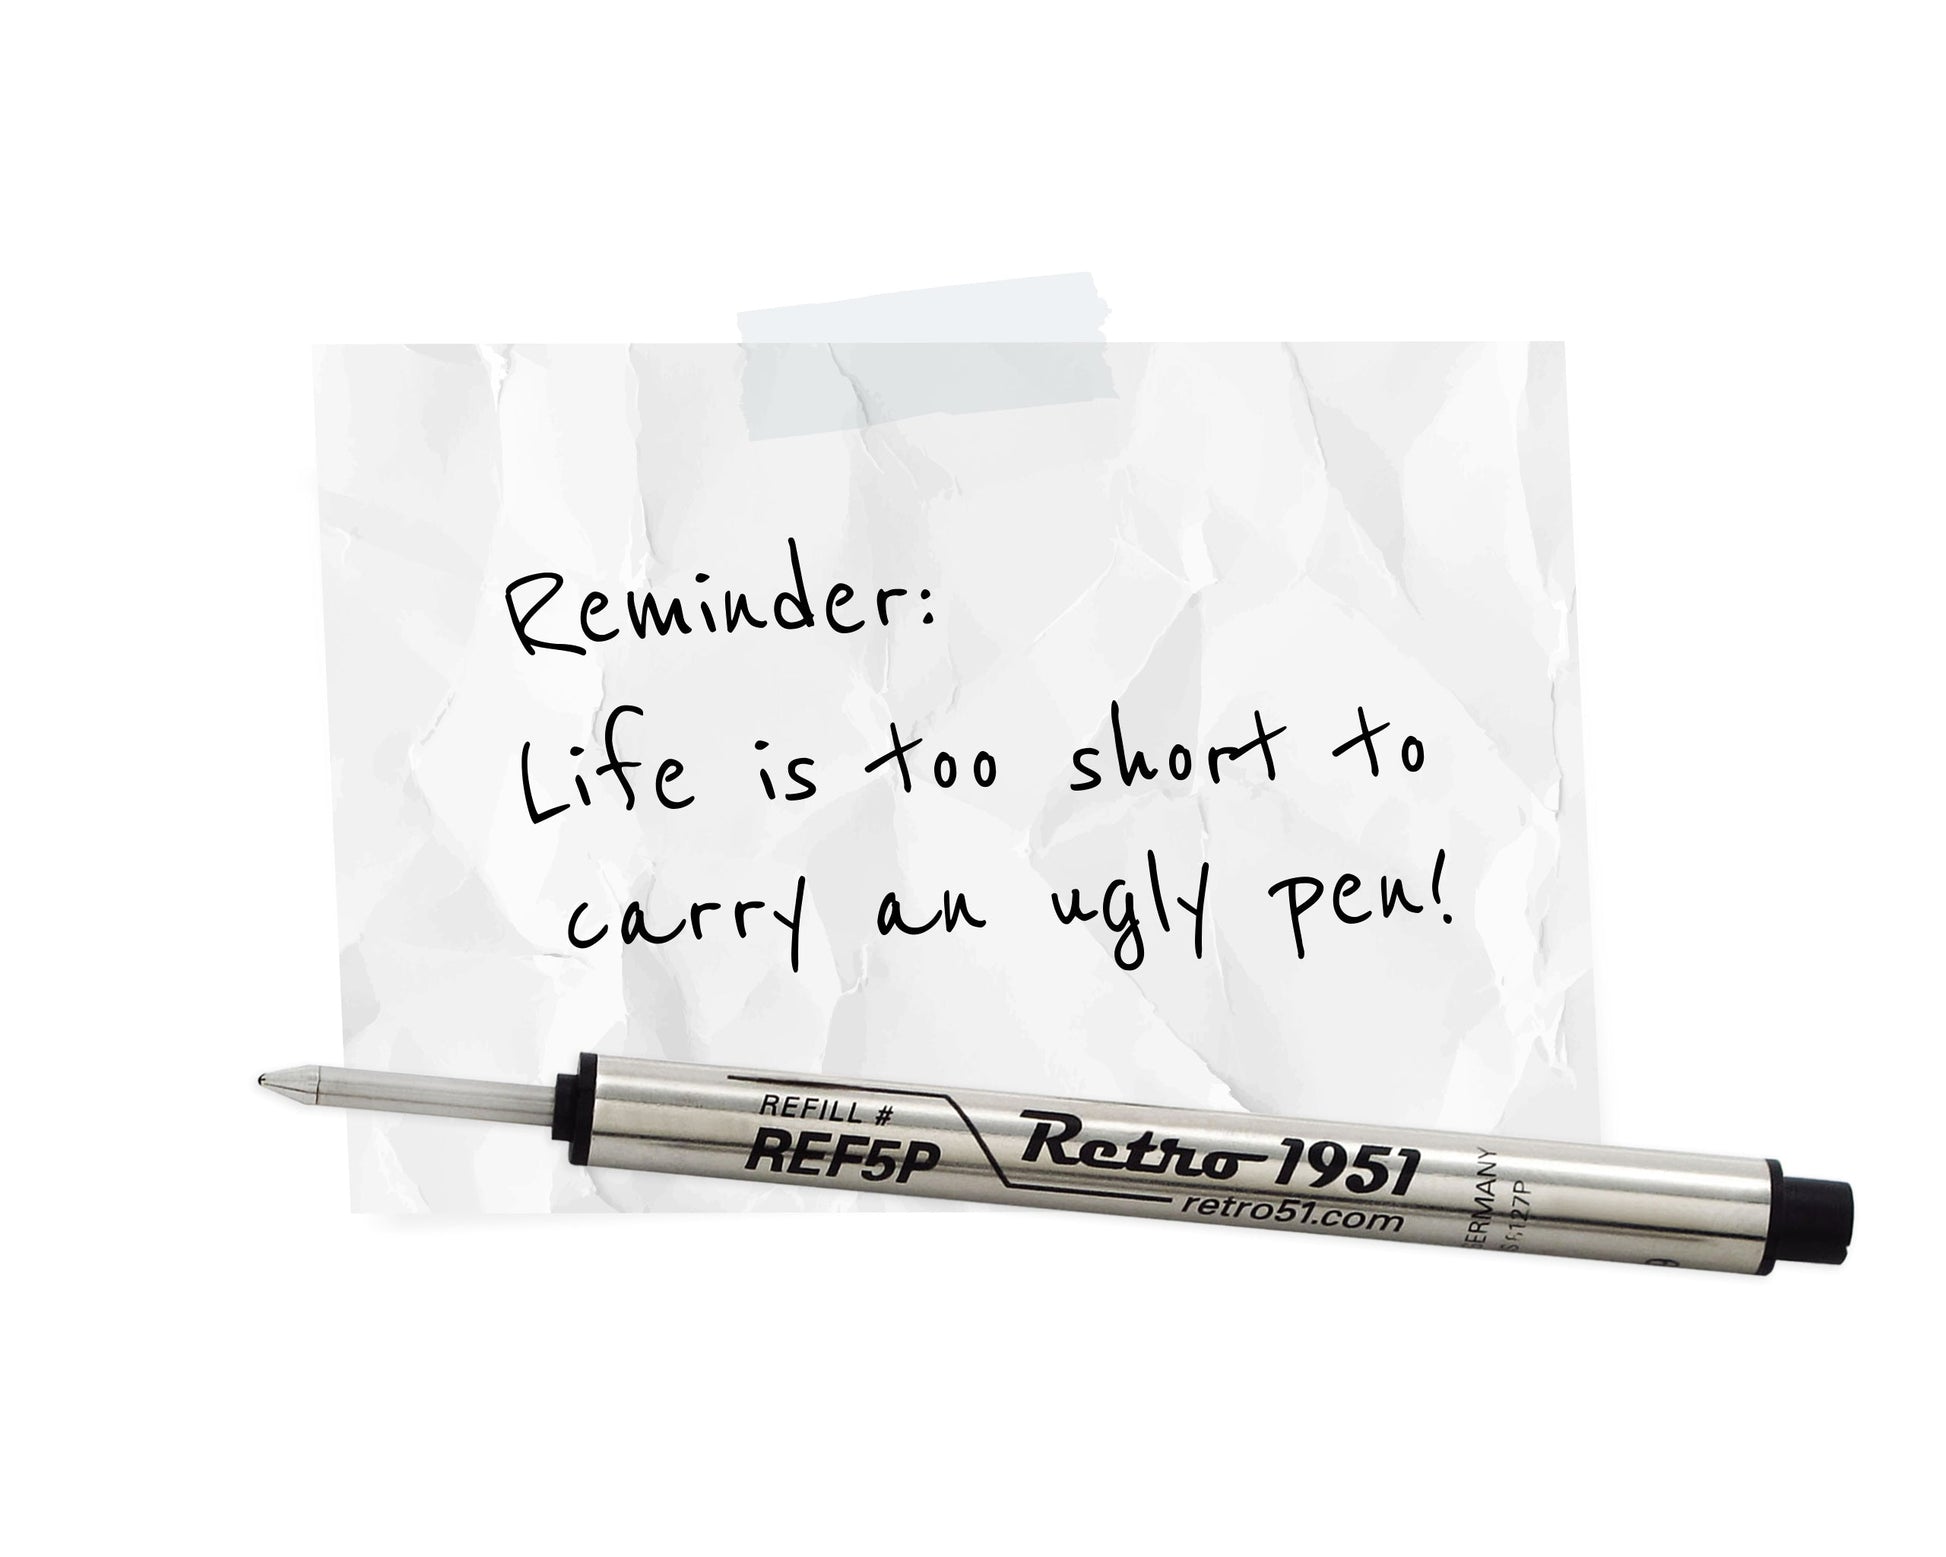 Reminder:
Life is too short to
carry an ugly pen!
REFILL #
REF5P
Retro 1951
retro51.com
GERMANY